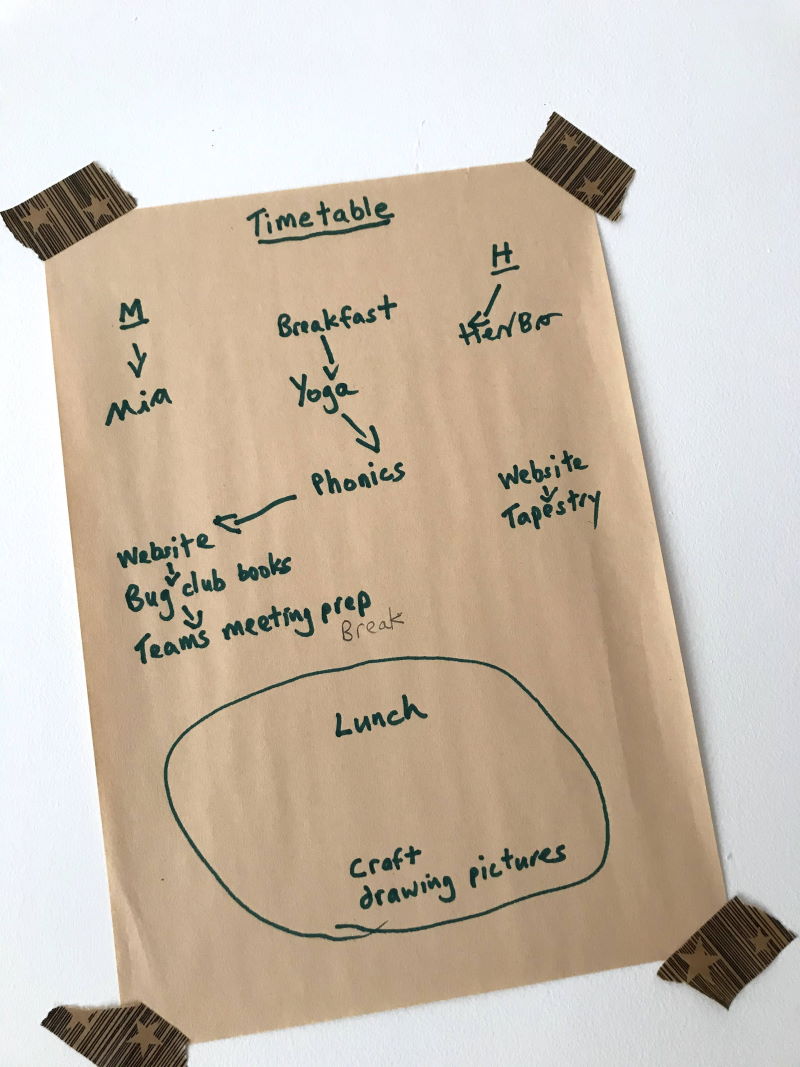 Timetable
H
M
Breakfast
Mia
Yoga
Phonics
Website
Tapestry
Website
Bug club books
Teams meeting prep
Break
Lunch
Craft
drawing pictures